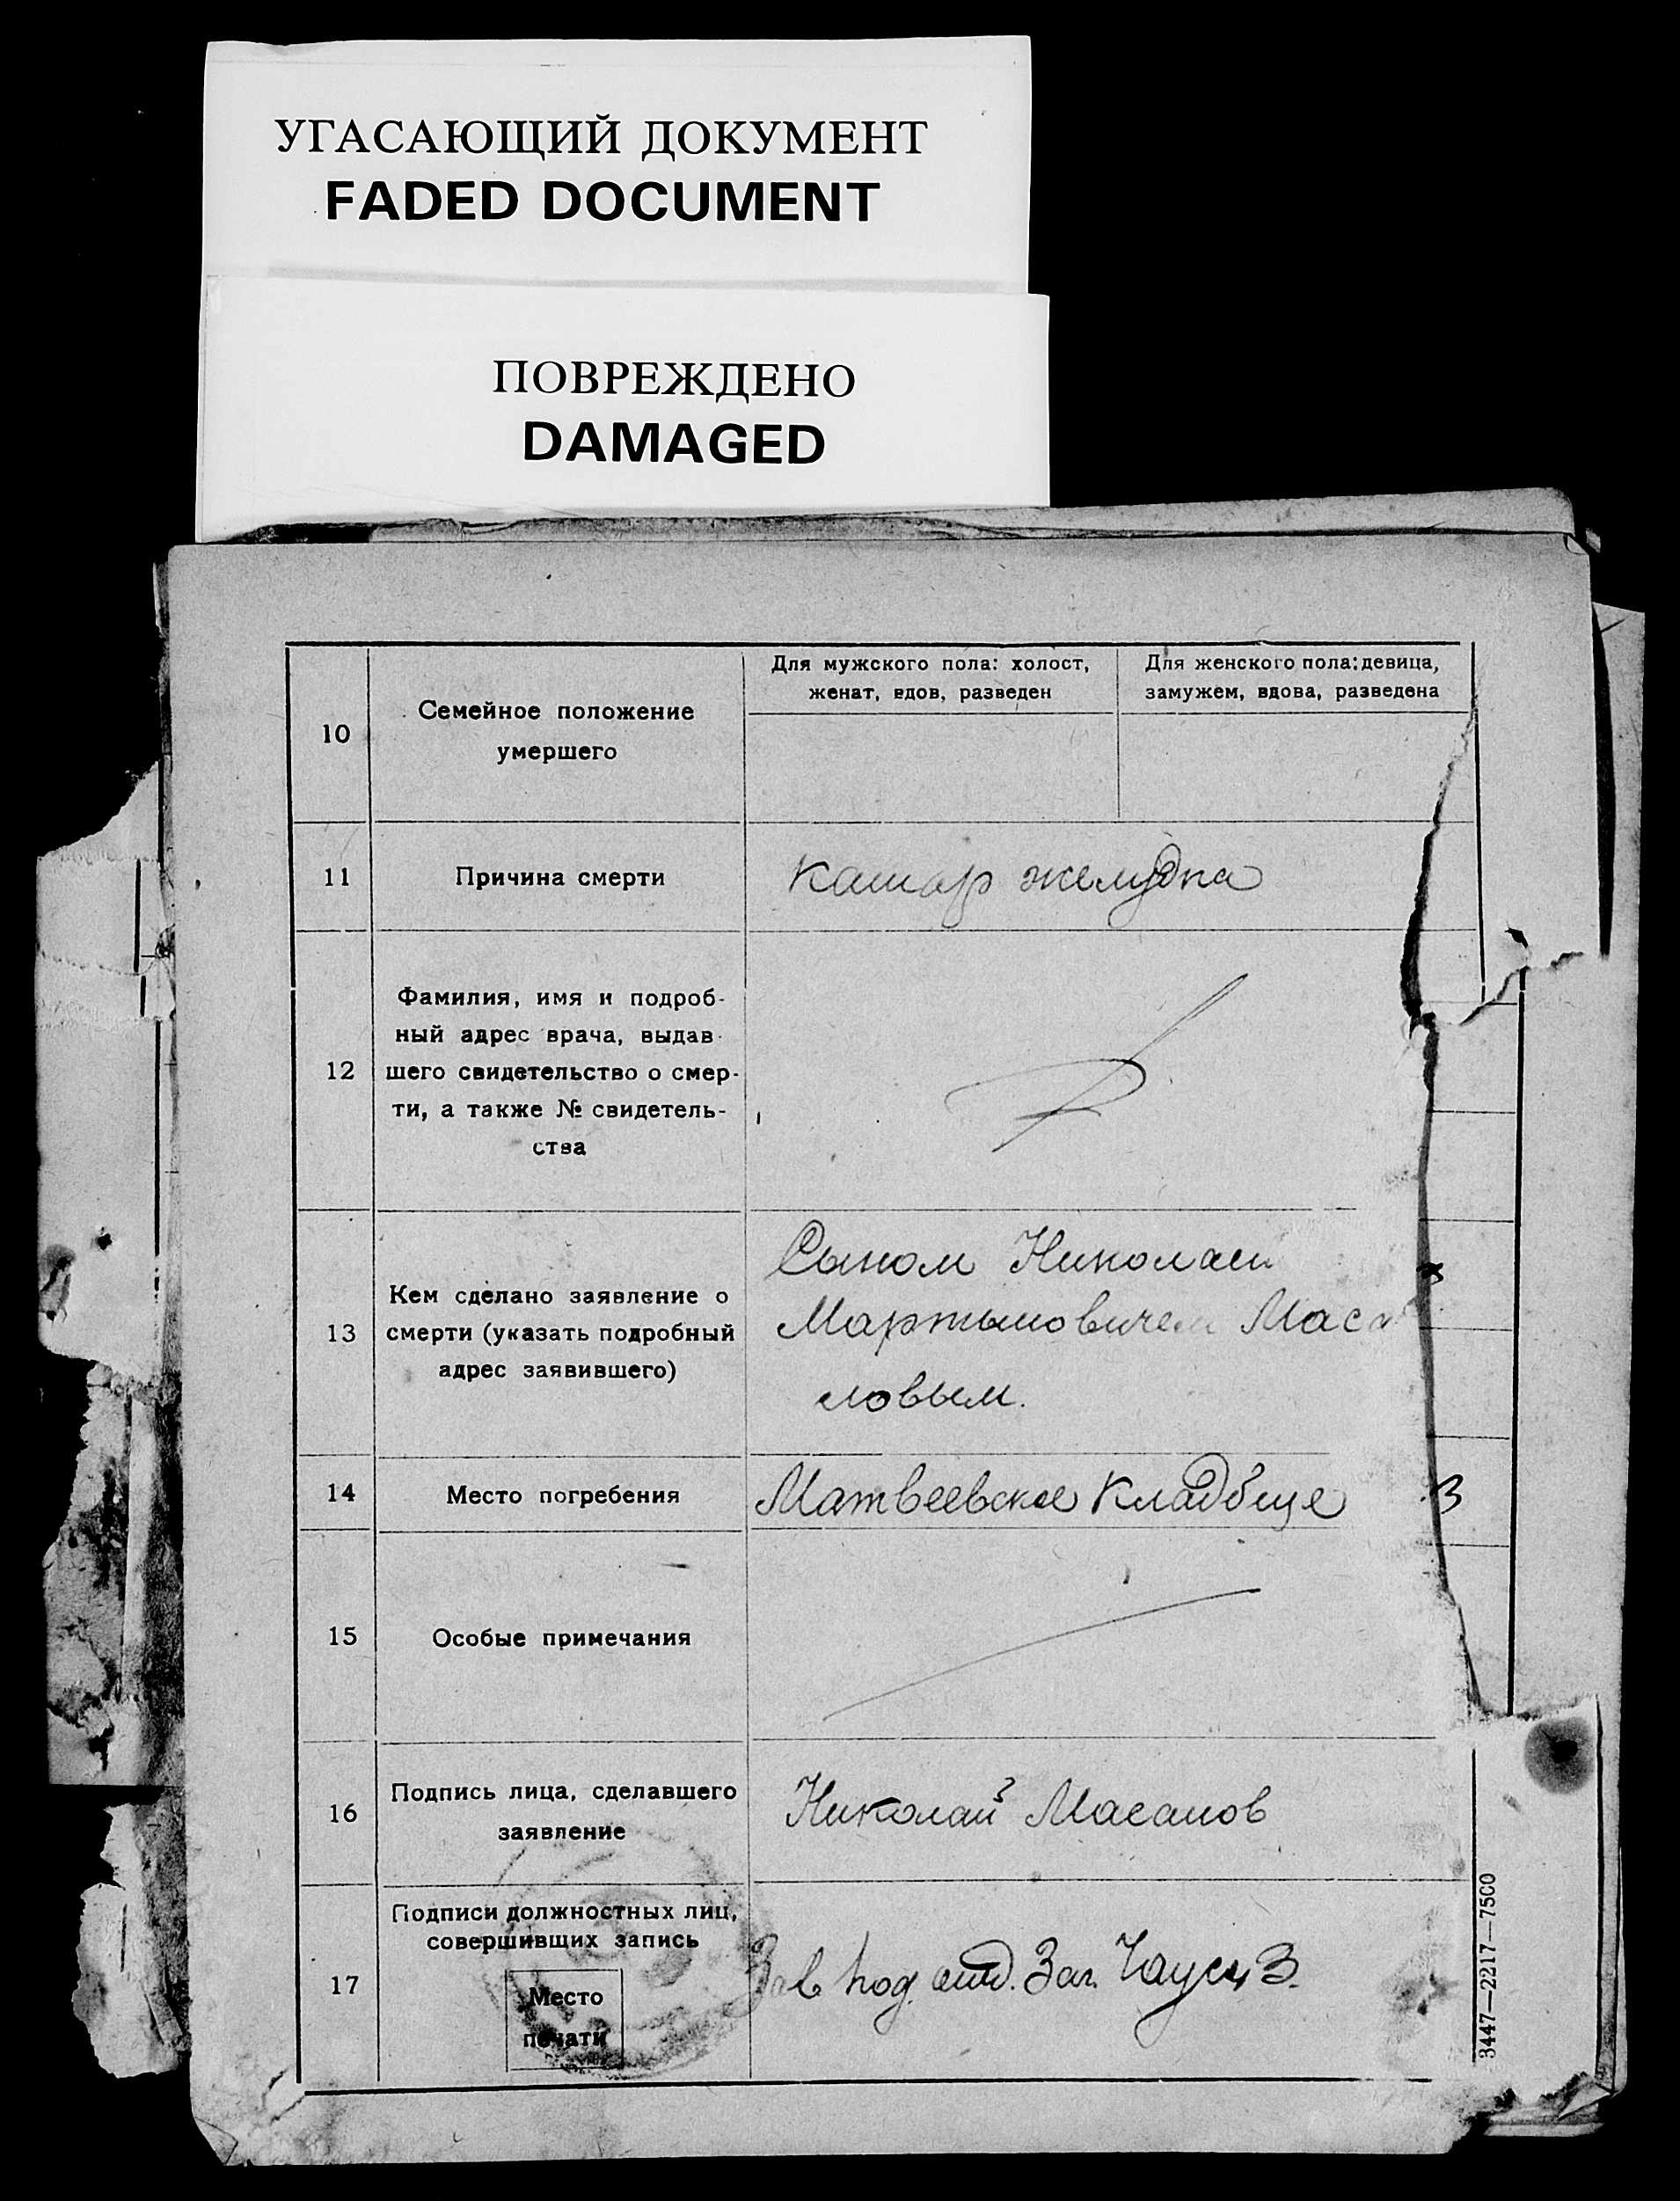 УГАСАЮЩИЙ ДОКУМЕНТ
FADED DOCUMENT
ПОВРЕЖДЕНО
DAMAGED
10
Семейное положение
умершего
Для мужского пола: холост,
женат, вдов, разведен
Для женского пола: девица,
замужем, вдова, разведена
11
Причина смерти
Катар желудка
12
Фамилия, имя и подроб-
ный адрес врача, выдав-
шего свидетельство о смер-
ти, а также № свидетель-
ства
13
Кем сделано заявление о
смерти (указать подробный
адрес заявившего)
Сыном Николаем
Мартыновичем Маса
новым.
14
Место погребения
Матвеевское Кладбище
15
Особые примечания
16
Подпись лица, сделавшего
заявление
Николай Масанов
17
Подписи должностных лиц,
совершивщих запись
Место
печати
Зав под. отд. Заг.
3447—2217—7500